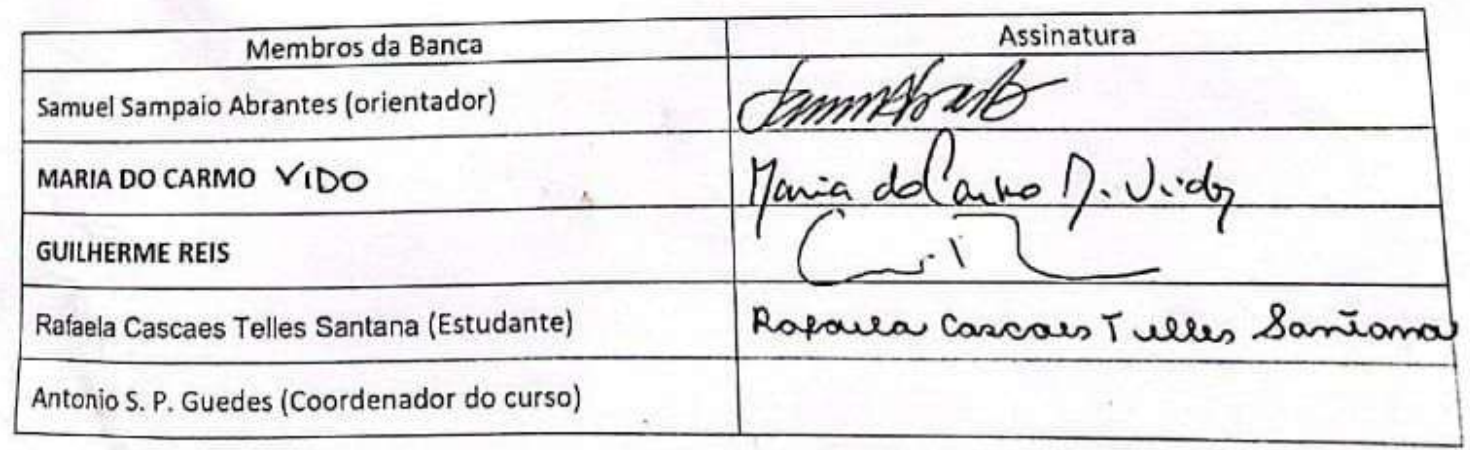 Membros da Banca Assinatura
Samuel Sampaio Abrantes (orientador)
MARIA DO CARMO VIDO Maria do Carmo
GUILHERME REIS
Rafaela Cascaes Telles Santana (Estudante) Rafaela Cascaes Telles Santana
Antonio S. P. Guedes (Coordenador do curso)